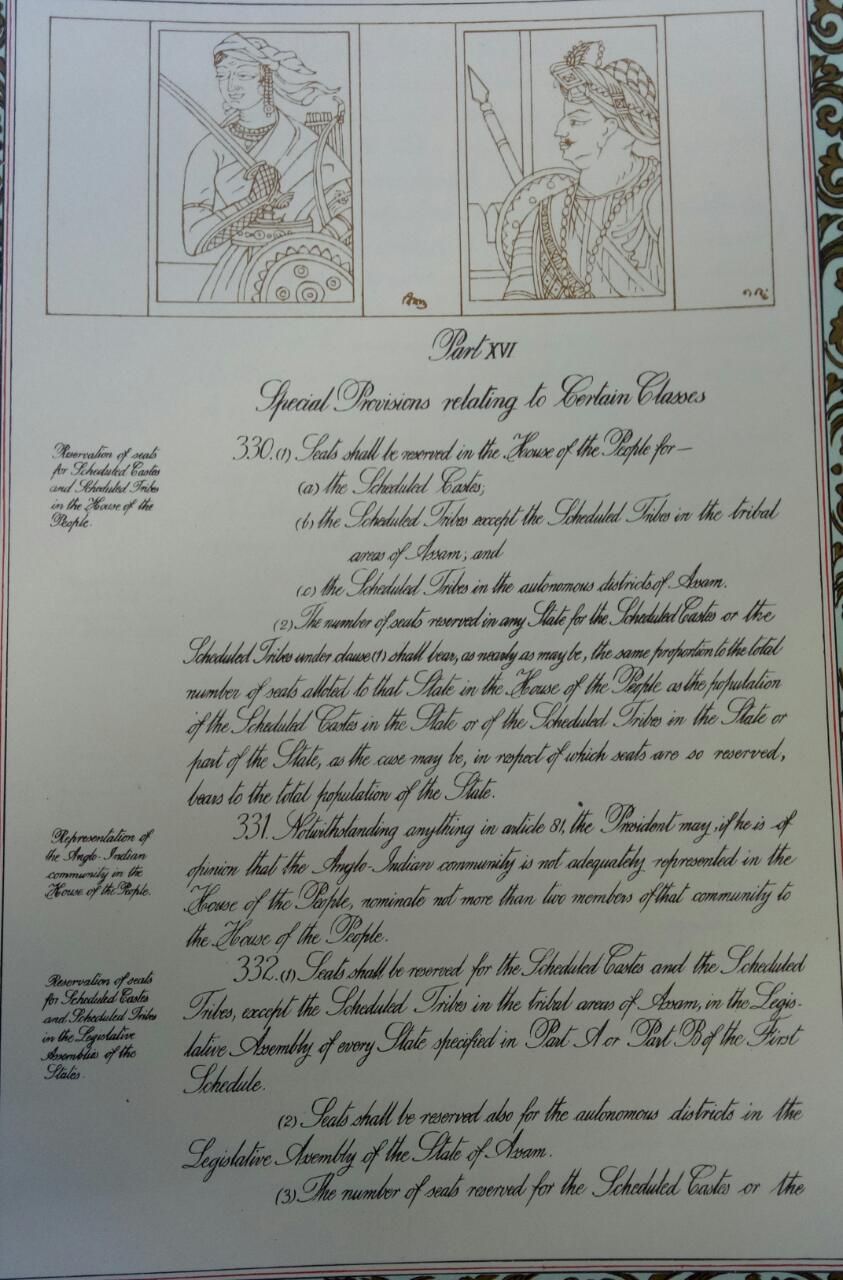 Part XVI
Special Provisions relating to Certain Classes
Reservation of seats
for Scheduled Castes
and Scheduled Tribes
in the House of the
People.
330.(1) Seats shall be reserved in the House of the People for—
(a) the Scheduled Castes;
(b) the Scheduled Tribes except the Scheduled Tribes in the tribal
areas of Assam; and
(c) the Scheduled Tribes in the autonomous districts of Assam.
(2) The number of seats reserved in any State for the Scheduled Castes or the
Scheduled Tribes under clause (1) shall bear, as nearly as may be, the same proportion to the total
number of seats alloted to that State in the House of the People as the population
of the Scheduled Castes in the State or of the Scheduled Tribes in the State or
part of the State, as the case may be, in respect of which seats are so reserved,
bears to the total population of the State.
Representation of
the Anglo-Indian
community in the
House of the People.
331. Notwithstanding anything in article 81, the President may, if he is of
opinion that the Anglo-Indian community is not adequately represented in the
House of the People, nominate not more than two members of that community to
the House of the People.
Reservation of seats
for Scheduled Castes
and Scheduled Tribes
in the Legislative
Assemblies of the
States.
332.(1) Seats shall be reserved for the Scheduled Castes and the Scheduled
Tribes, except the Scheduled Tribes in the tribal areas of Assam, in the Legis-
lative Assembly of every State specified in Part A or Part B of the First
Schedule.
(2) Seats shall be reserved also for the autonomous districts in the
Legislative Assembly of the State of Assam.
(3) The number of seats reserved for the Scheduled Castes or the